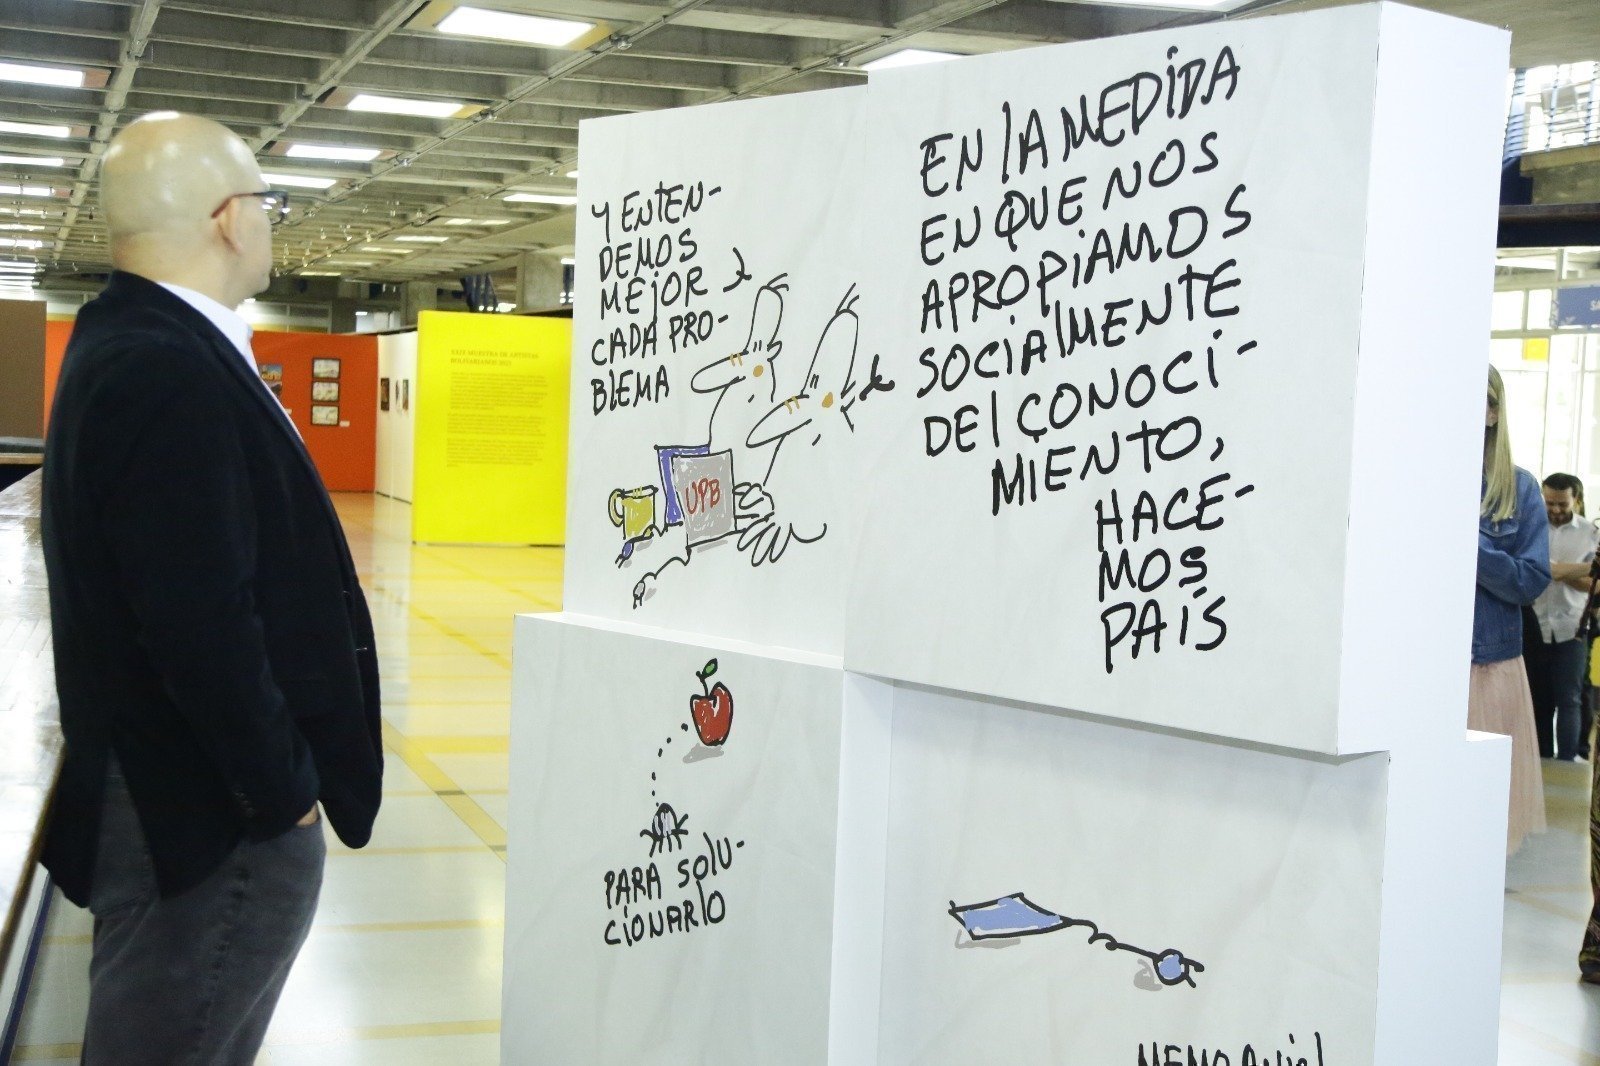 Y ENTEN-
DEMOS
MEJOR
CADA PRO-
BLEMA
UPB
EN LA MEDIDA
EN QUE NOS
APROPIAMOS
SOCIALMENTE
DEL CONOCI-
MIENTO,
HACE-
MOS
PAÍS
PARA SOLU-
CIONARLO
XXIX MUESTRA DE ARTISTAS
BOLIVARIANOS 2023